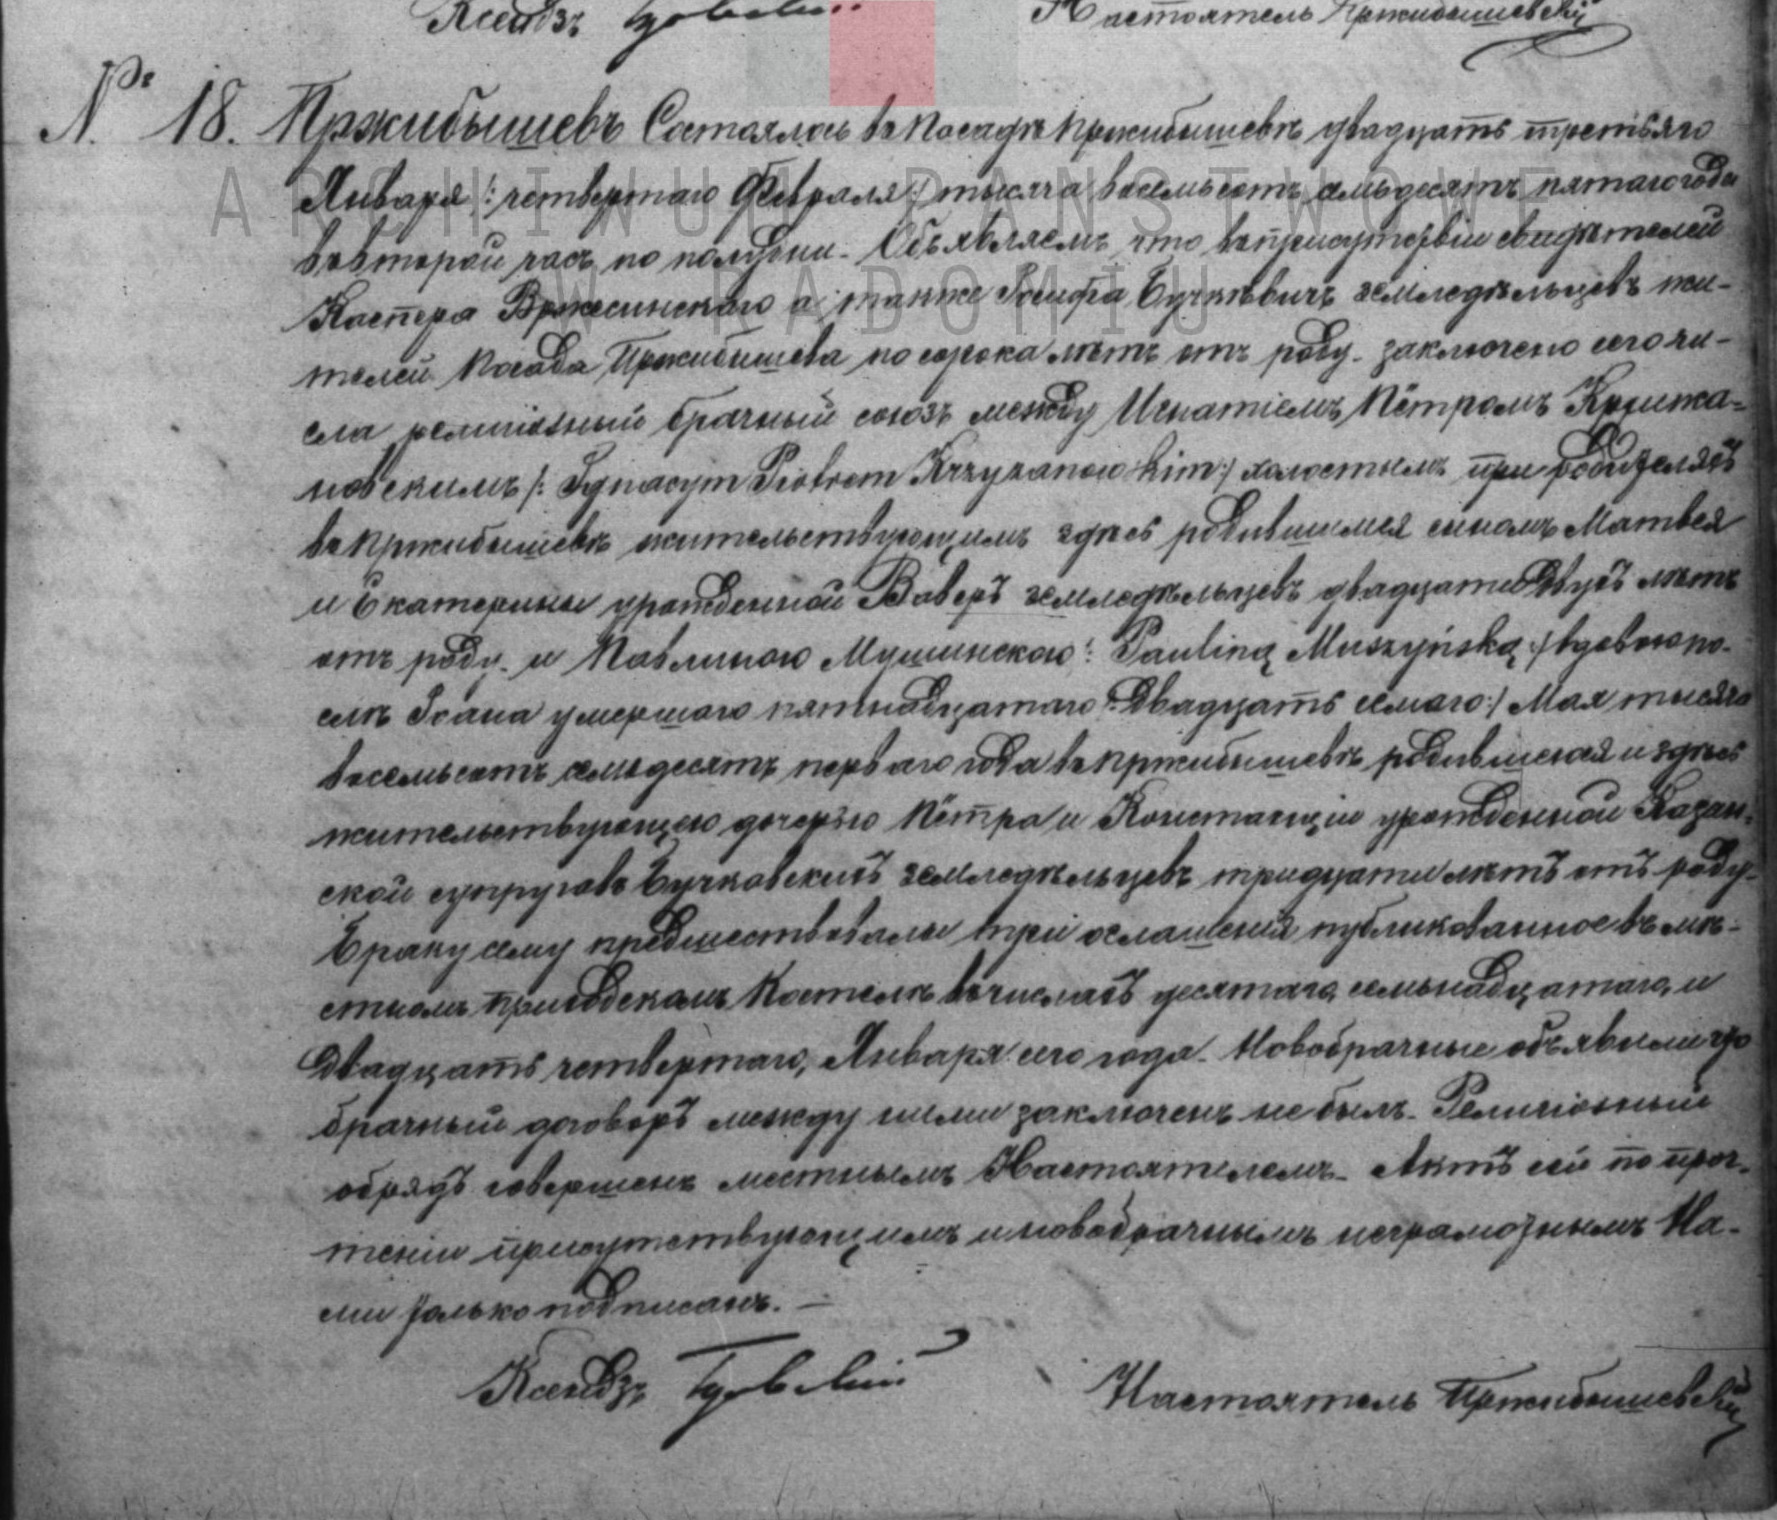 Ксендзъ Настоятель Пржибышевскій
№ 18. Пржибышевъ Состоялось въ посадѣ Пржибышевѣ двадцать третьяго
Января /: четвертаго Февраля :/ тысяча восемьсотъ семьдесятъ пятаго года
во второй часъ по полудни. Объявляемъ, что въ присутствіи свидѣтелей
Каспера Вржесинскаго а также Іосифа Бучкѣвичъ земледѣльцевъ жи-
телей посада Пржибышева по сорока лѣтъ отъ роду. заключено сего чи-
сла религіозный брачный союзъ между Игнатіемъ Пётромъ Кржижа-
новскимъ /: Ignacym Piotrem Krzyżanowskim :/ холостымъ при родителяхъ
въ Пржибышевѣ жительствующимъ здѣсь родившимся сыномъ Матвея
и Екатерины урожденной Ваверъ земледѣльцевъ двадцати двухъ лѣтъ
отъ роду. и Павлиною Мушинскою /: Pauliną Muszyńską :/ вдовою по-
слѣ Іоана умершаго пятнадцатаго /: Двадцать семаго :/ Мая тысяча
восемьсотъ семьдесятъ перваго года въ Пржибышевѣ родившеюся и здѣсь
жительствующею дочерью Пётра и Констанціи урожденной Казан-
ской супруговъ Бучковскихъ земледѣльцевъ тридцати лѣтъ отъ роду.
Браку сему предшествовали три оглашенія публикованное въ мѣ-
стномъ приходскомъ Костелѣ въ числахъ десятаго, семьнадцатаго, и
Двадцать четвертаго, Января сего года. Новобрачные объявили что
брачный договоръ между ними заключенъ не былъ. Религіозный
обрядъ совершенъ местнымъ Настоятелемъ. Актъ сей по проч-
тении присутствующимъ и новобрачнымъ неграмотнымъ На-
ми только подписанъ. —
Ксендзъ Настоятель Пржибышевскій
ARCHIWUM PAŃSTWOWE
W RADOMIU